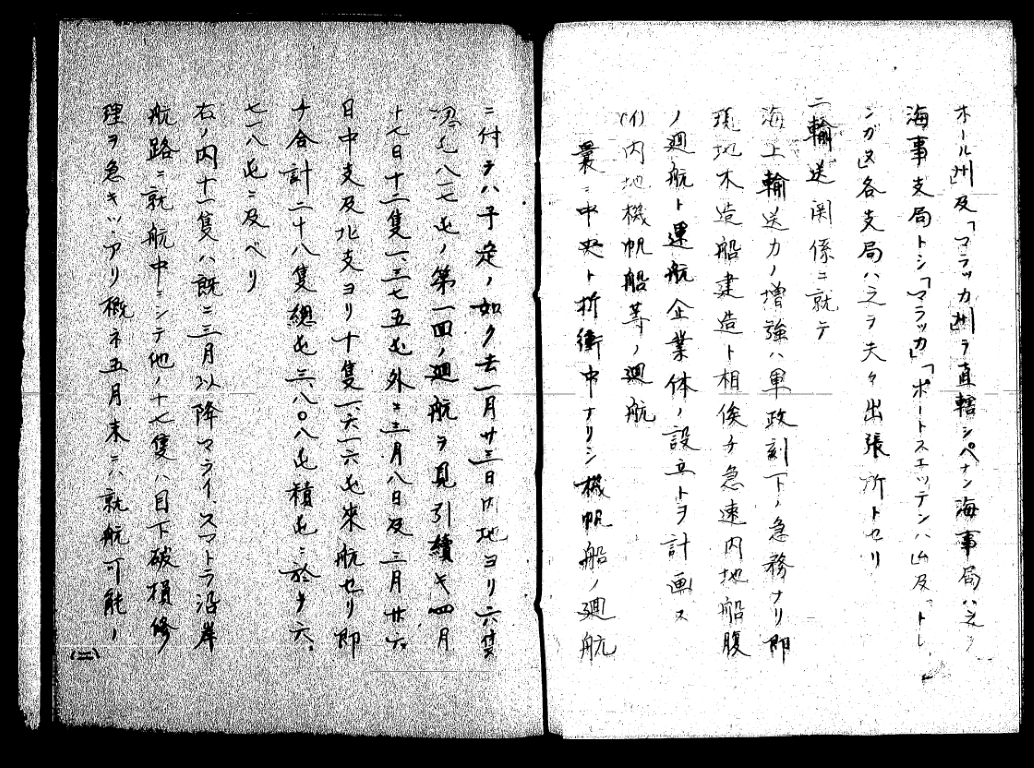 ホール州」及「マラッカ州」ヲ直轄シペナン海事局ハ之ヲ
海事支局トシ「マラッカ」「ポートスエッテンハム」及「トレ
ンガヌ」各支局ハ之ヲ夫々出張所トセリ
二輸送関係ニ就テ
海上輸送力ノ増強ハ軍政刻下ノ急務ナリ即
現地木造船建造ト相俟チ急速内地船腹
ノ廻航ト運航企業体ノ設立トヲ計画ス
(イ)内地機帆船等ノ廻航
曩ニ中央ト折衝中ナリシ機帆船ノ廻航
ニ付テハ予定ノ如ク去一月廿三日内地ヨリ六隻
八一七屯ノ第一回ノ廻航ヲ見引続キ四月
十七日十二隻一、三七五屯外ニ三月八日及三月廿六
日中支及北支ヨリ十隻一、六一六屯来航セリ即
チ合計二十八隻総屯三、八〇八屯積屯ニ於テ六、
七一八屯ニ及ベリ
右ノ内十一隻ハ既ニ三月以降マライ、スマトラ沿岸
航路ニ就航中ニシテ他ノ十七隻ハ目下破損修
理ヲ急ギツヽアリ概ネ五月末ニハ就航可能ノ
(二)